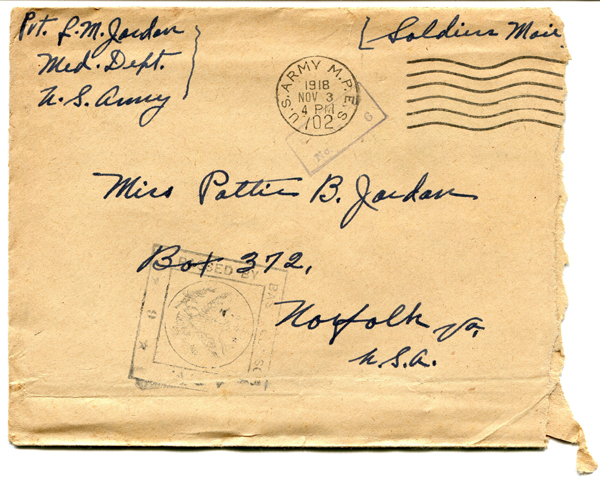 Pvt. L. M. Jordan
Med. Dept.
U. S. Army
Soldiers Mail
U.S. ARMY M.P.E.S.
1918
NOV 3
4 PM
702
No. 6
Miss Pattie B. Jordan
Box 372,
Norfolk, Va.
U.S.A.
PASSED BY
BAS